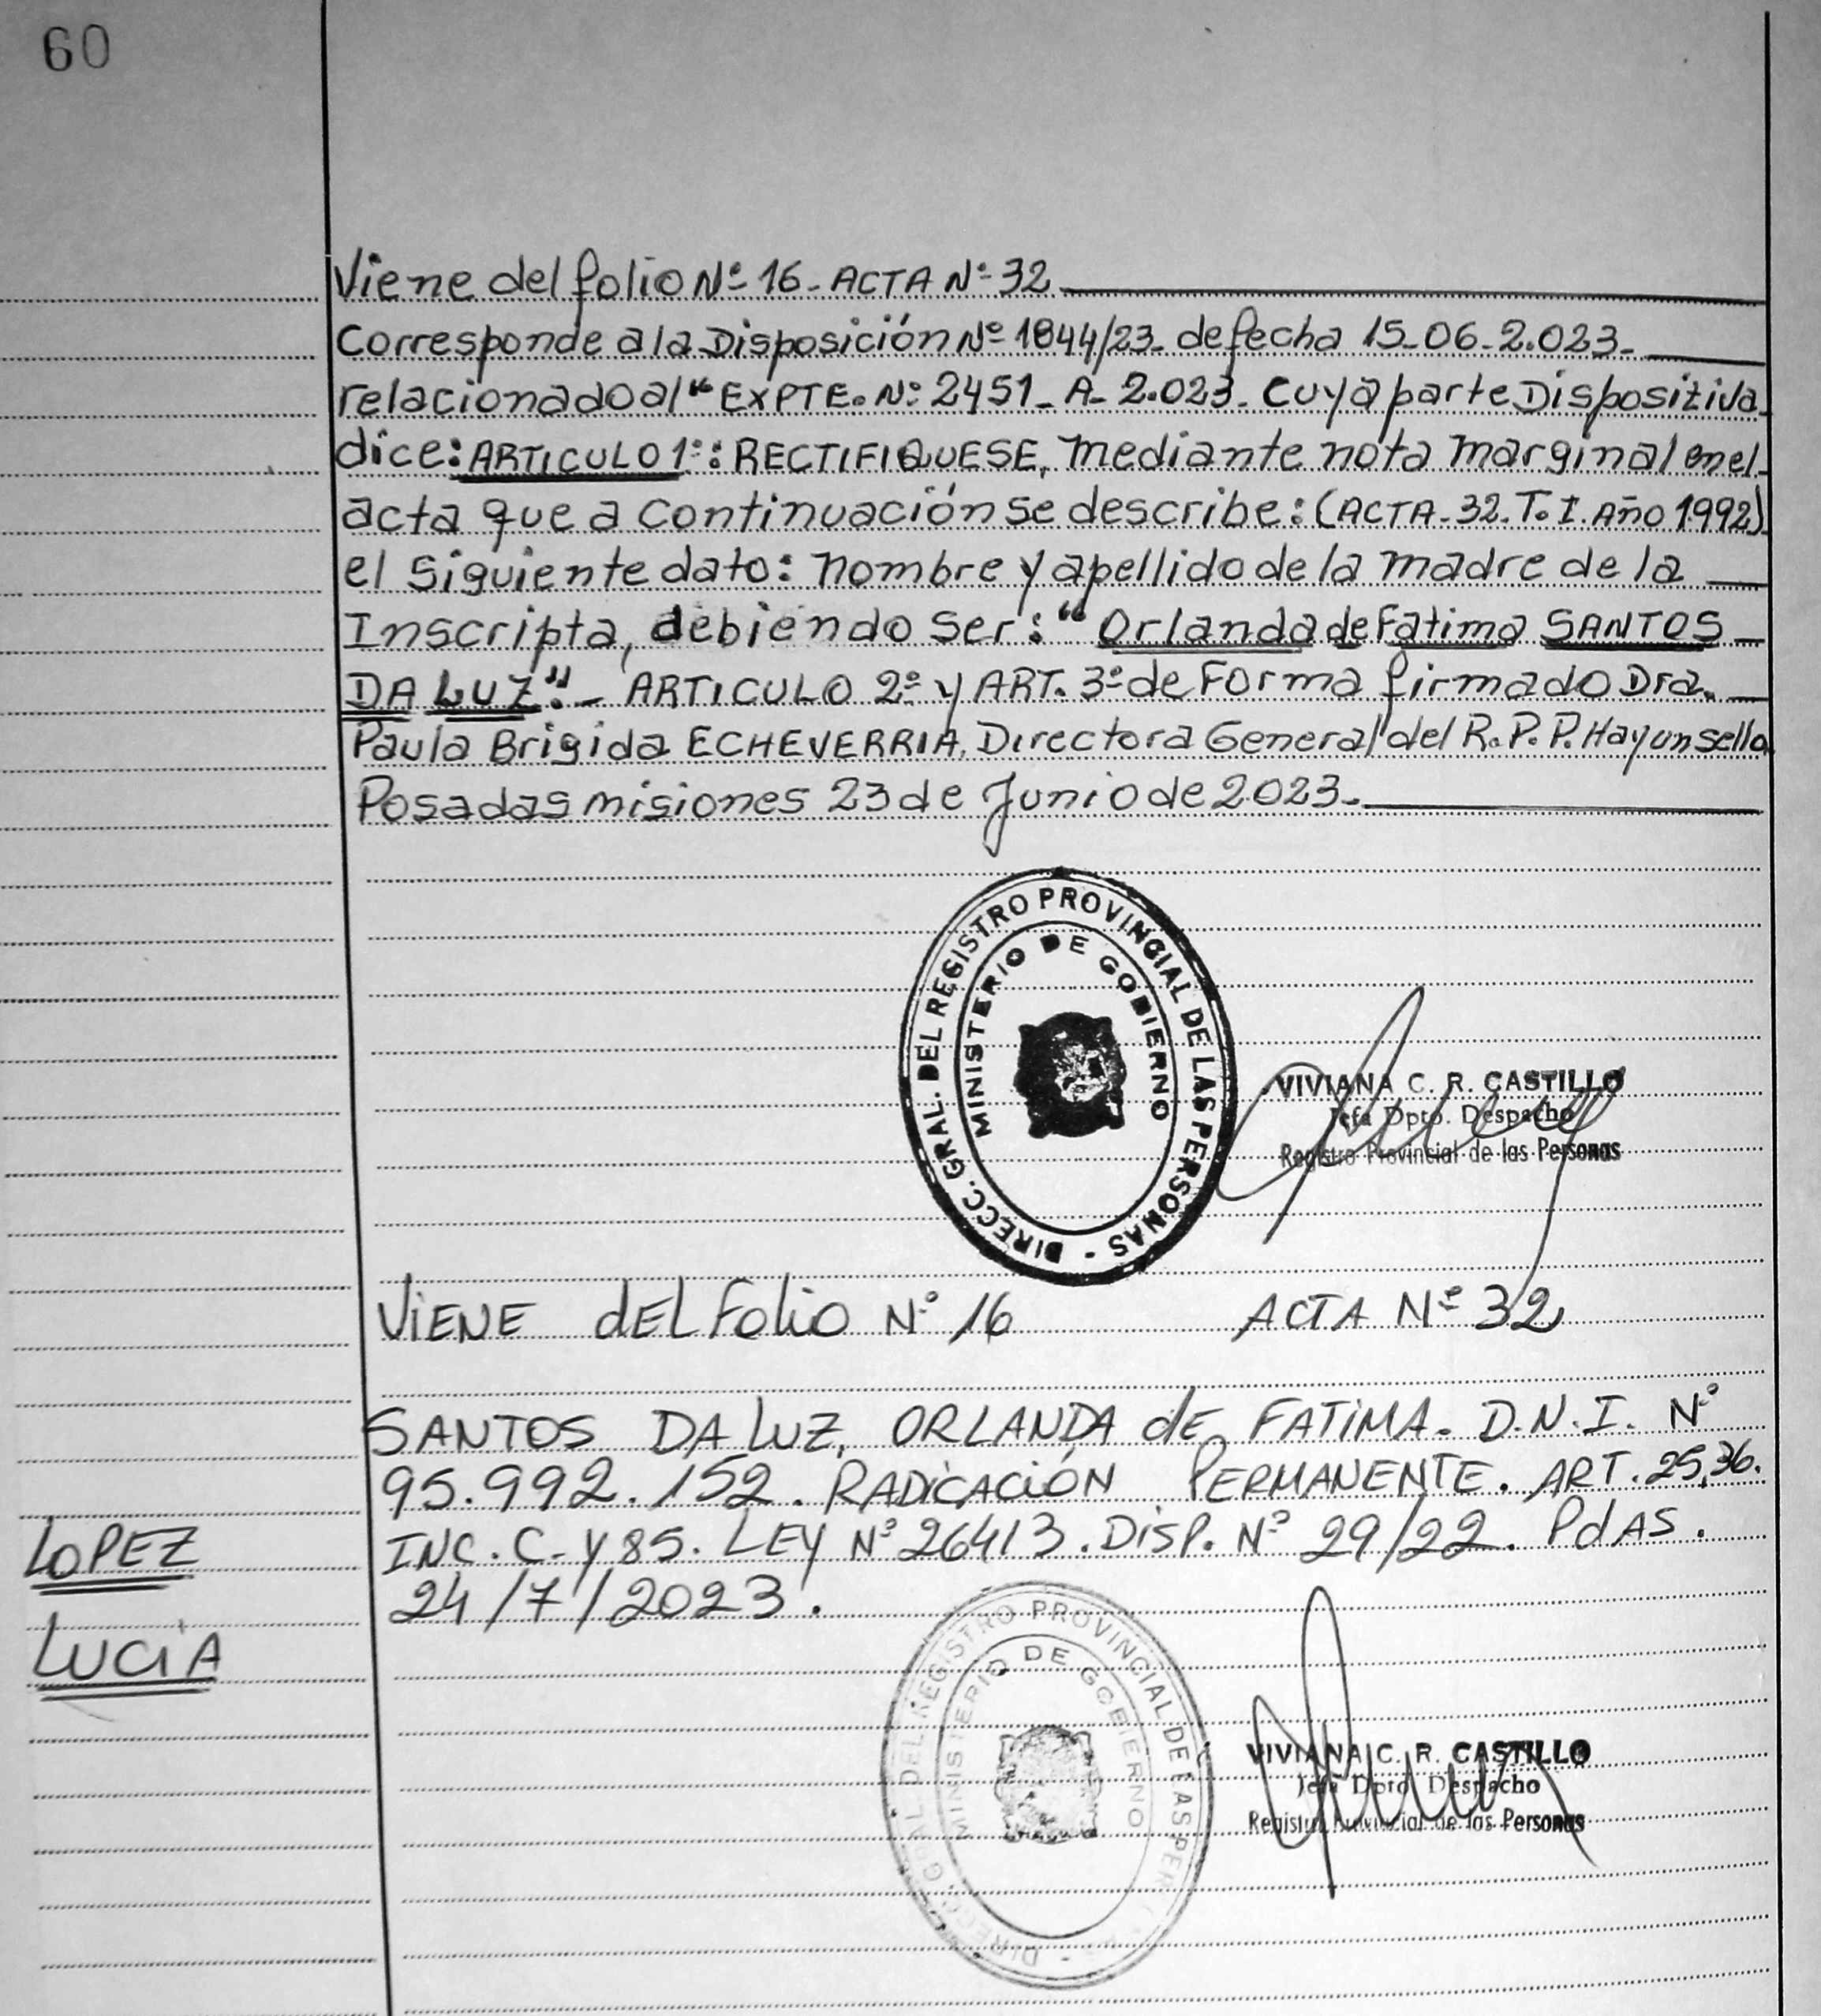 60
Viene del folio Nº 16- ACTA Nº 32
Corresponde a la Disposición Nº 1844/23- de fecha 15-06-2.023-
relacionado al "EXPTE. Nº 2451- A- 2.023- Cuya parte Dispositiva
dice: ARTICULO 1º: RECTIFIQUESE, mediante nota marginal en el
acta que a continuación se describe: (ACTA-32. T. I. Año 1992)
el siguiente dato: nombre y apellido de la madre de la
Inscripta, debiendo ser: "Orlanda de Fatima SANTOS
DA LUZ".- ARTICULO 2º y ART. 3º de Forma firmado Dra.
Paula Brigida ECHEVERRIA, Directora General del R.P.P. Hay un sello
Posadas misiones 23 de Junio de 2.023-
DIRECC. GRAL. DEL REGISTRO PROVINCIAL DE LAS PERSONAS -
MINISTERIO DE GOBIERNO
VIVIANA C. R. CASTILLO
Jefa Dpto. Despacho
Registro Provincial de las Personas
VIENE DEL FOLIO Nº 16 ACTA Nº 32
SANTOS DA LUZ, ORLANDA dE FATIMA. D.N.I. Nº
95.992.152. RADICACIÓN PERMANENTE. ART. 25,36.
INC. C- y 85. LEY Nº 26413. DISP. Nº 29/22. PdAS.
24/7/2023.
LOPEZ
LUCIA
DIRECC. GRAL. DEL REGISTRO PROVINCIAL DE LAS PERSONAS -
MINISTERIO DE GOBIERNO
VIVIANA C. R. CASTILLO
Jefa Dpto. Despacho
Registro Provincial de las Personas